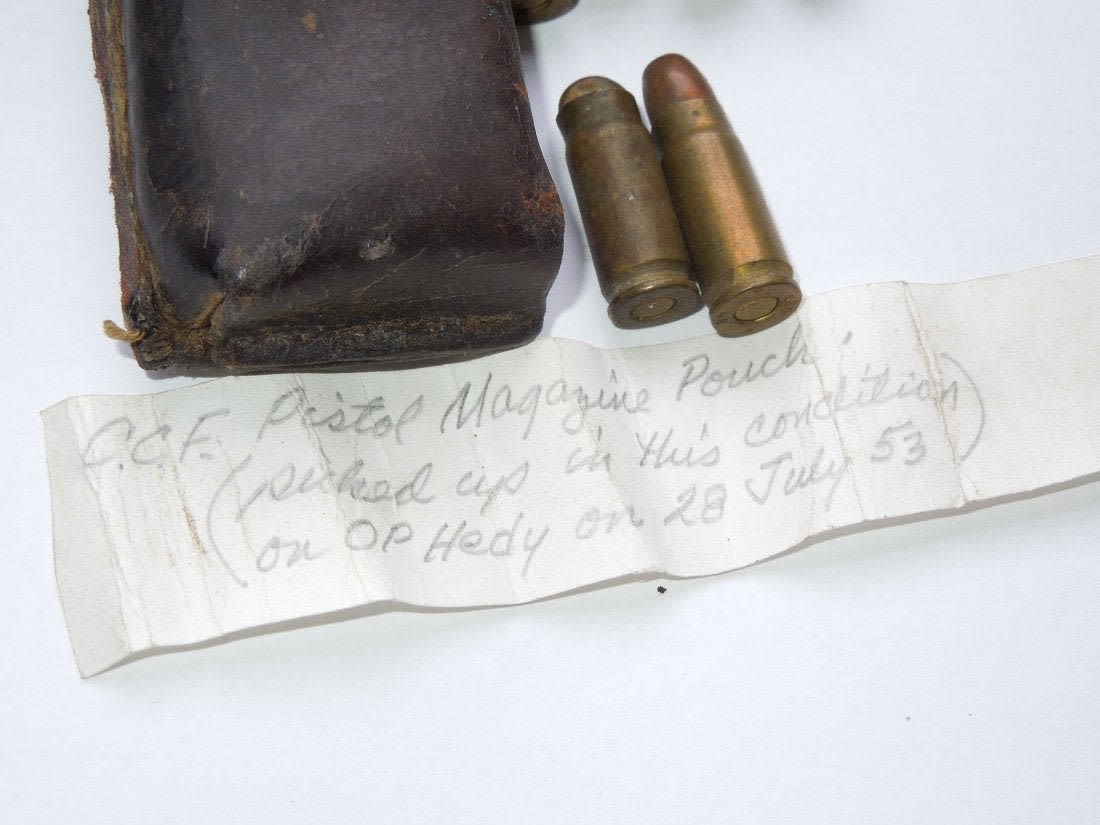 C.C.F. Pistol Magazine Pouch.
(picked up in this condition)
on OP Hedy on 28 July 53